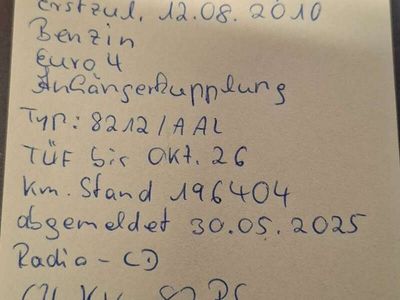 Erstzul. 12.08.2010
Benzin
Euro 4
Anhängerkupplung
Typ: 8212/AAL
TÜF bis Okt. 26
Km. Stand 196404
abgemeldet 30.05.2025
Radio - CD